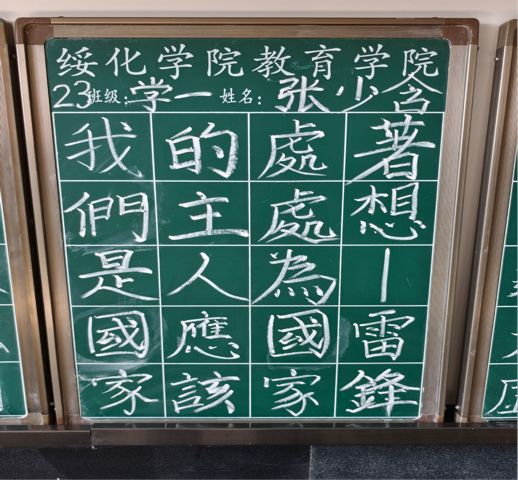 绥化学院教育学院
23班级:学一 姓名:张少含
我們是國家
的主人應該
處處為國家
著想—雷鋒